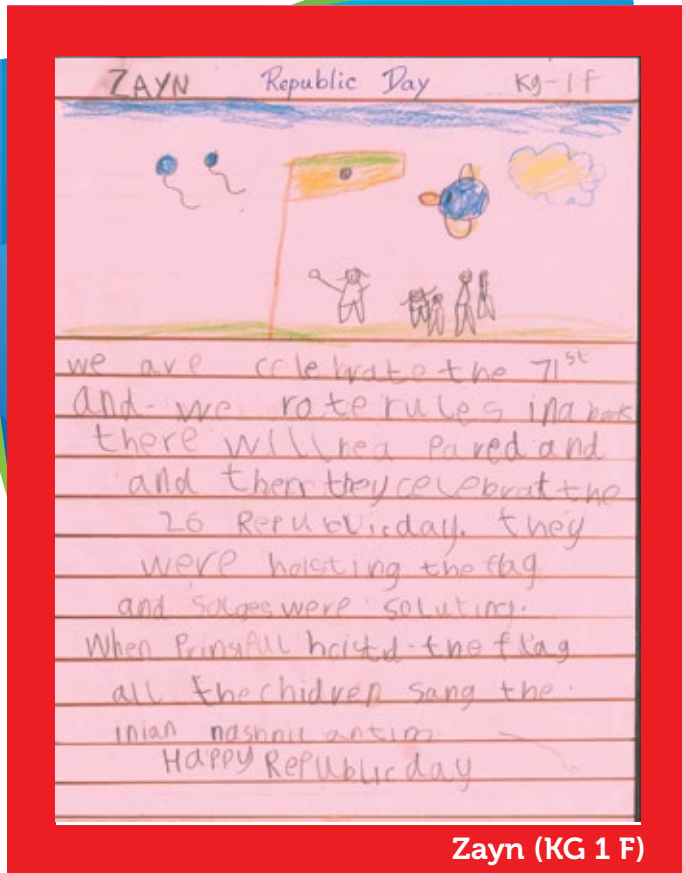 ZAYN Republic Day Kg-1 F
we are celebrate the 71st
and - we rote rules in a book
there will bea Pared and
and then they celebrat the
26 Republicday. they
were hoisting the flag
and solges were soluting.
When Prinsfull hoistd the flag
all the chidren sang the
inian nashnil antim
Happy Republic day
Zayn (KG 1 F)